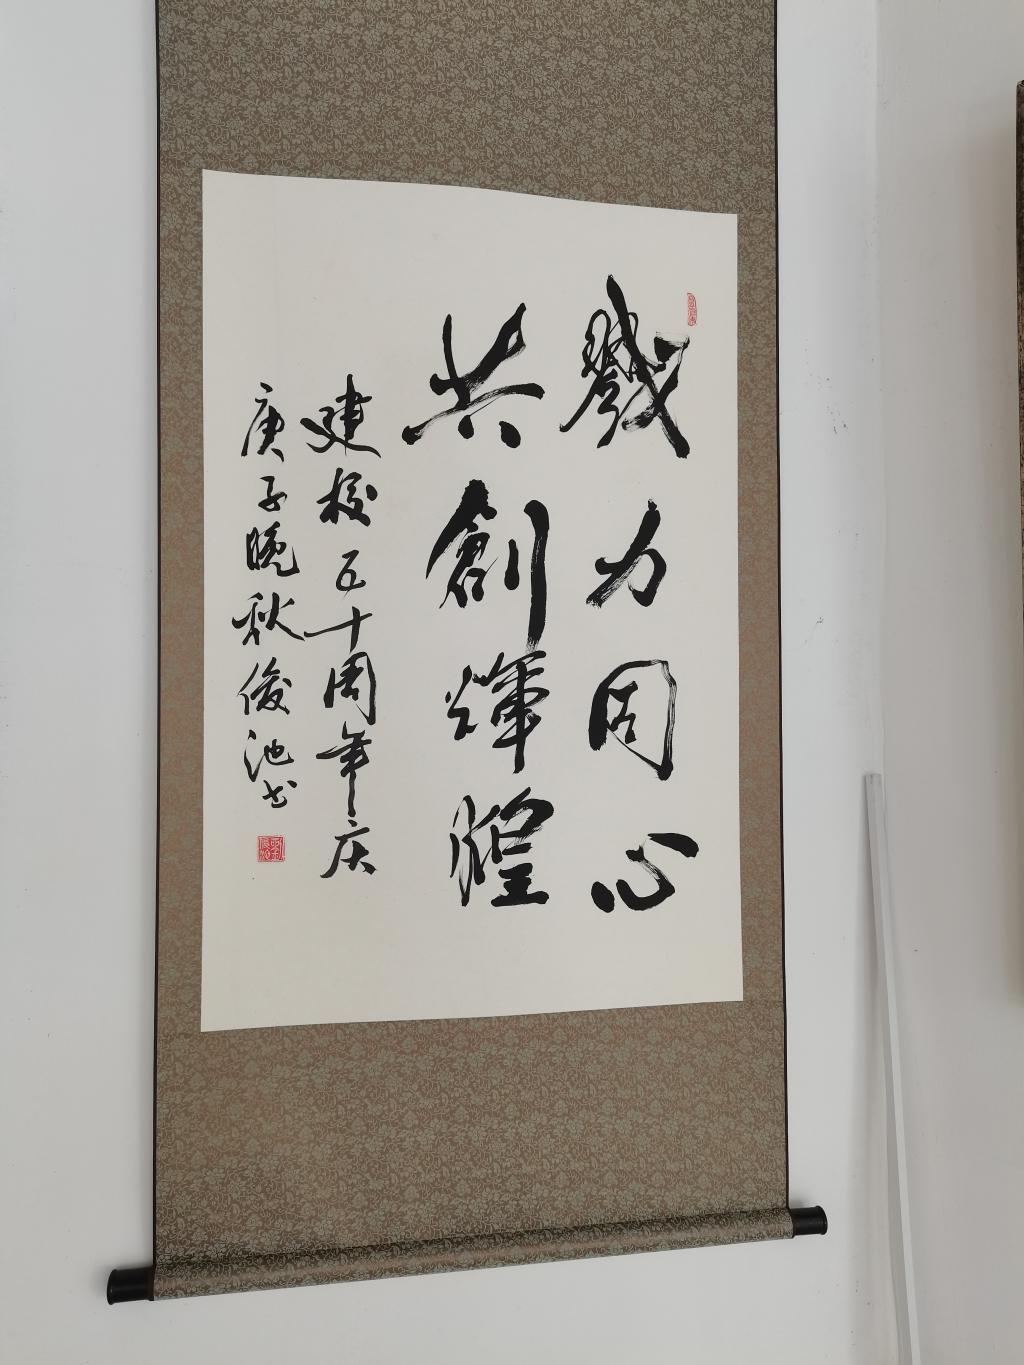 戮力同心
共創輝煌
建校五十周年庆
庚子晚秋俊池书